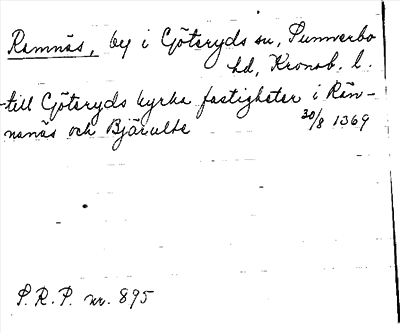 Ramnäs, by i Göteryds sn, Sunnerbo
hd, Kronob. l.
till Göteryds kyrka fastigheter i Rän-
nanäs och Bjärulte 30/8 1369
P.R.P. nr. 895